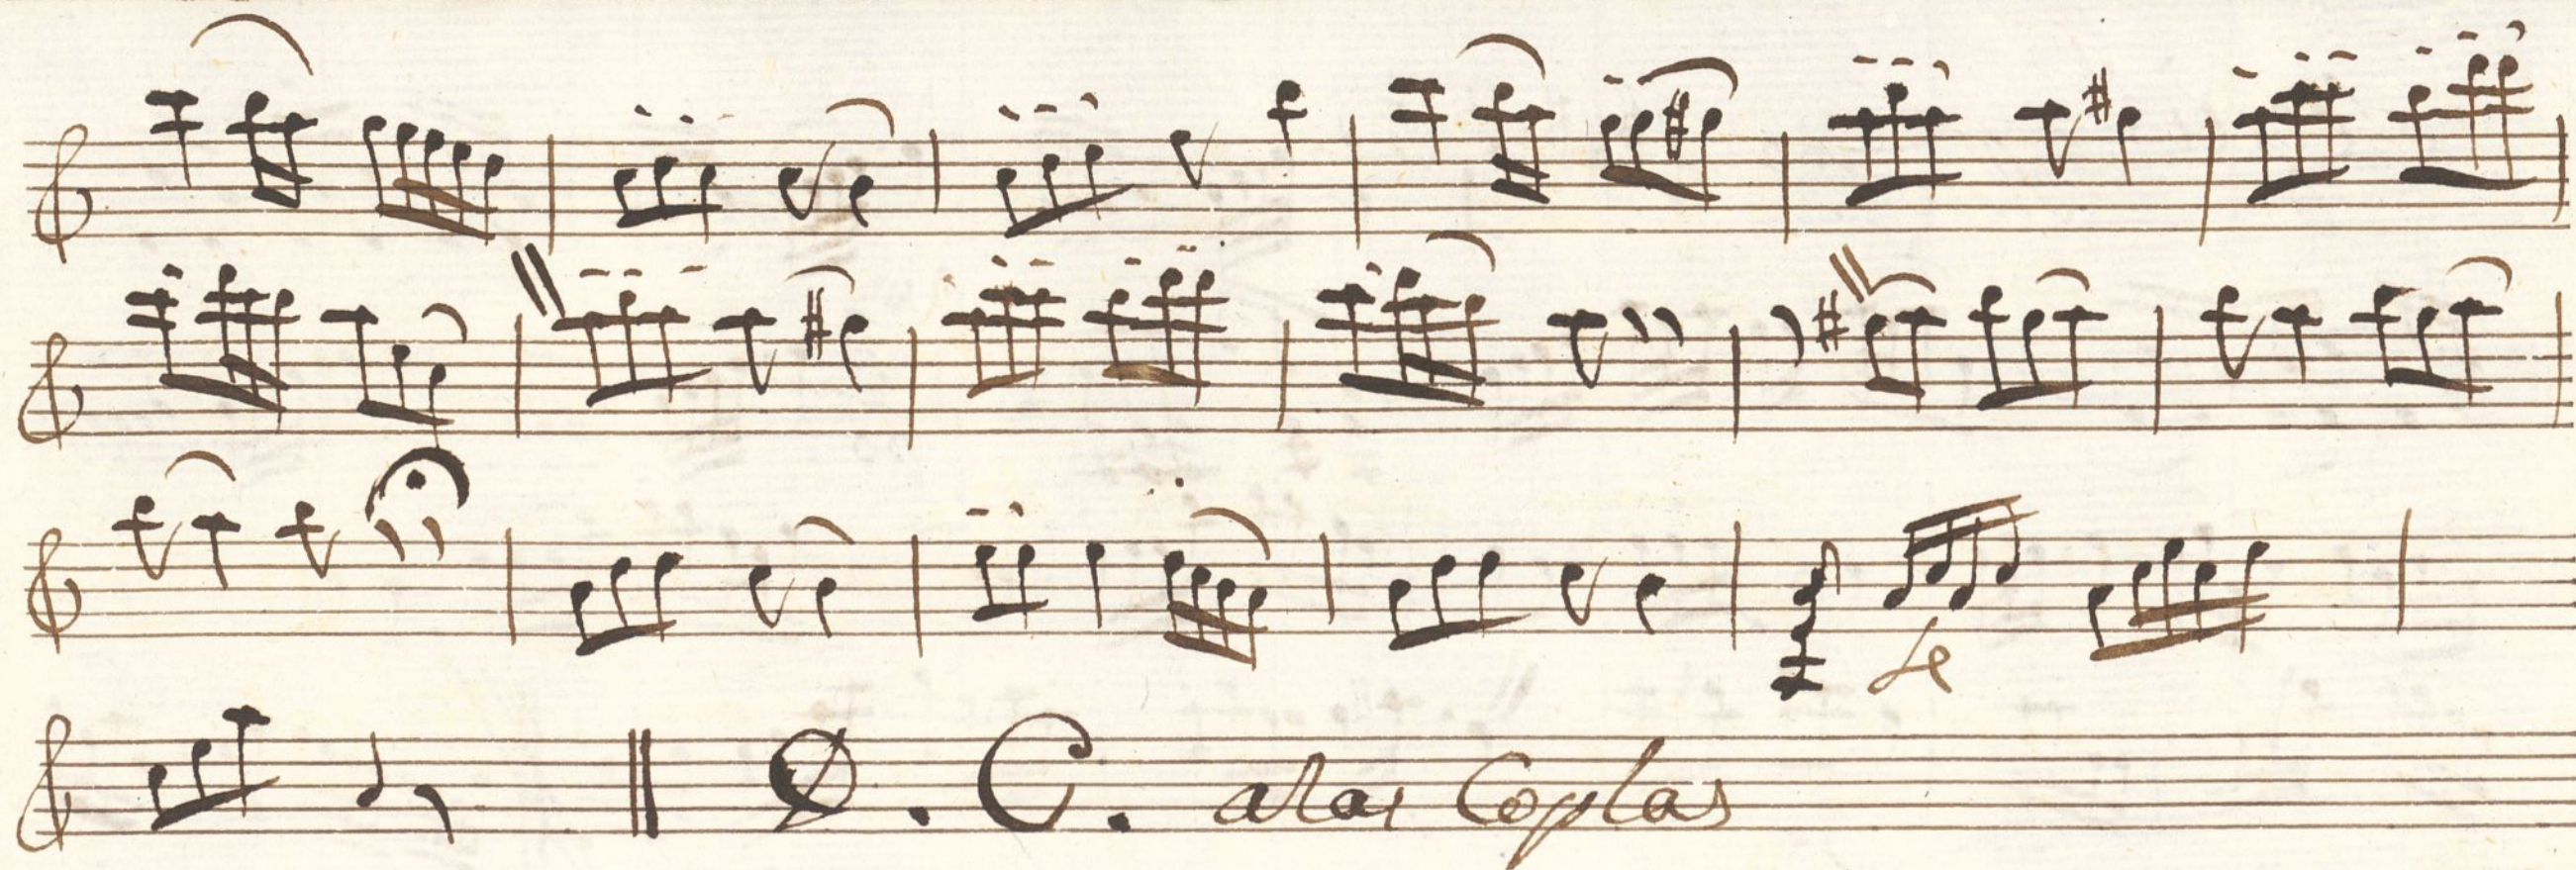 fe
D. C. alas Coplas